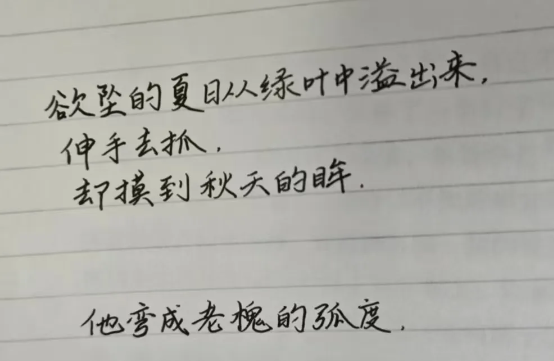 欲坠的夏日从绿叶中溢出来,
伸手去抓,
却摸到秋天的眸.
他弯成老槐的弧度.